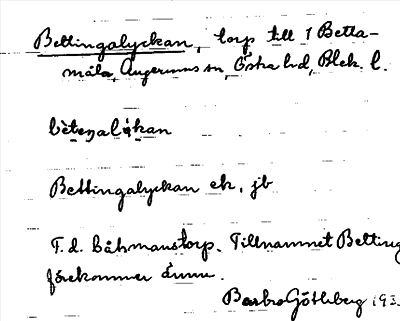 Bettingalyckan, torp till 1 Betta-
måla, Augerums sn, Östra hd, Blek. l.
Bettingalyckan ek, jb
F.d. båtsmanstorp. Tillnamnet Betting
förekommer ännu.
Barbro Götlberg 193